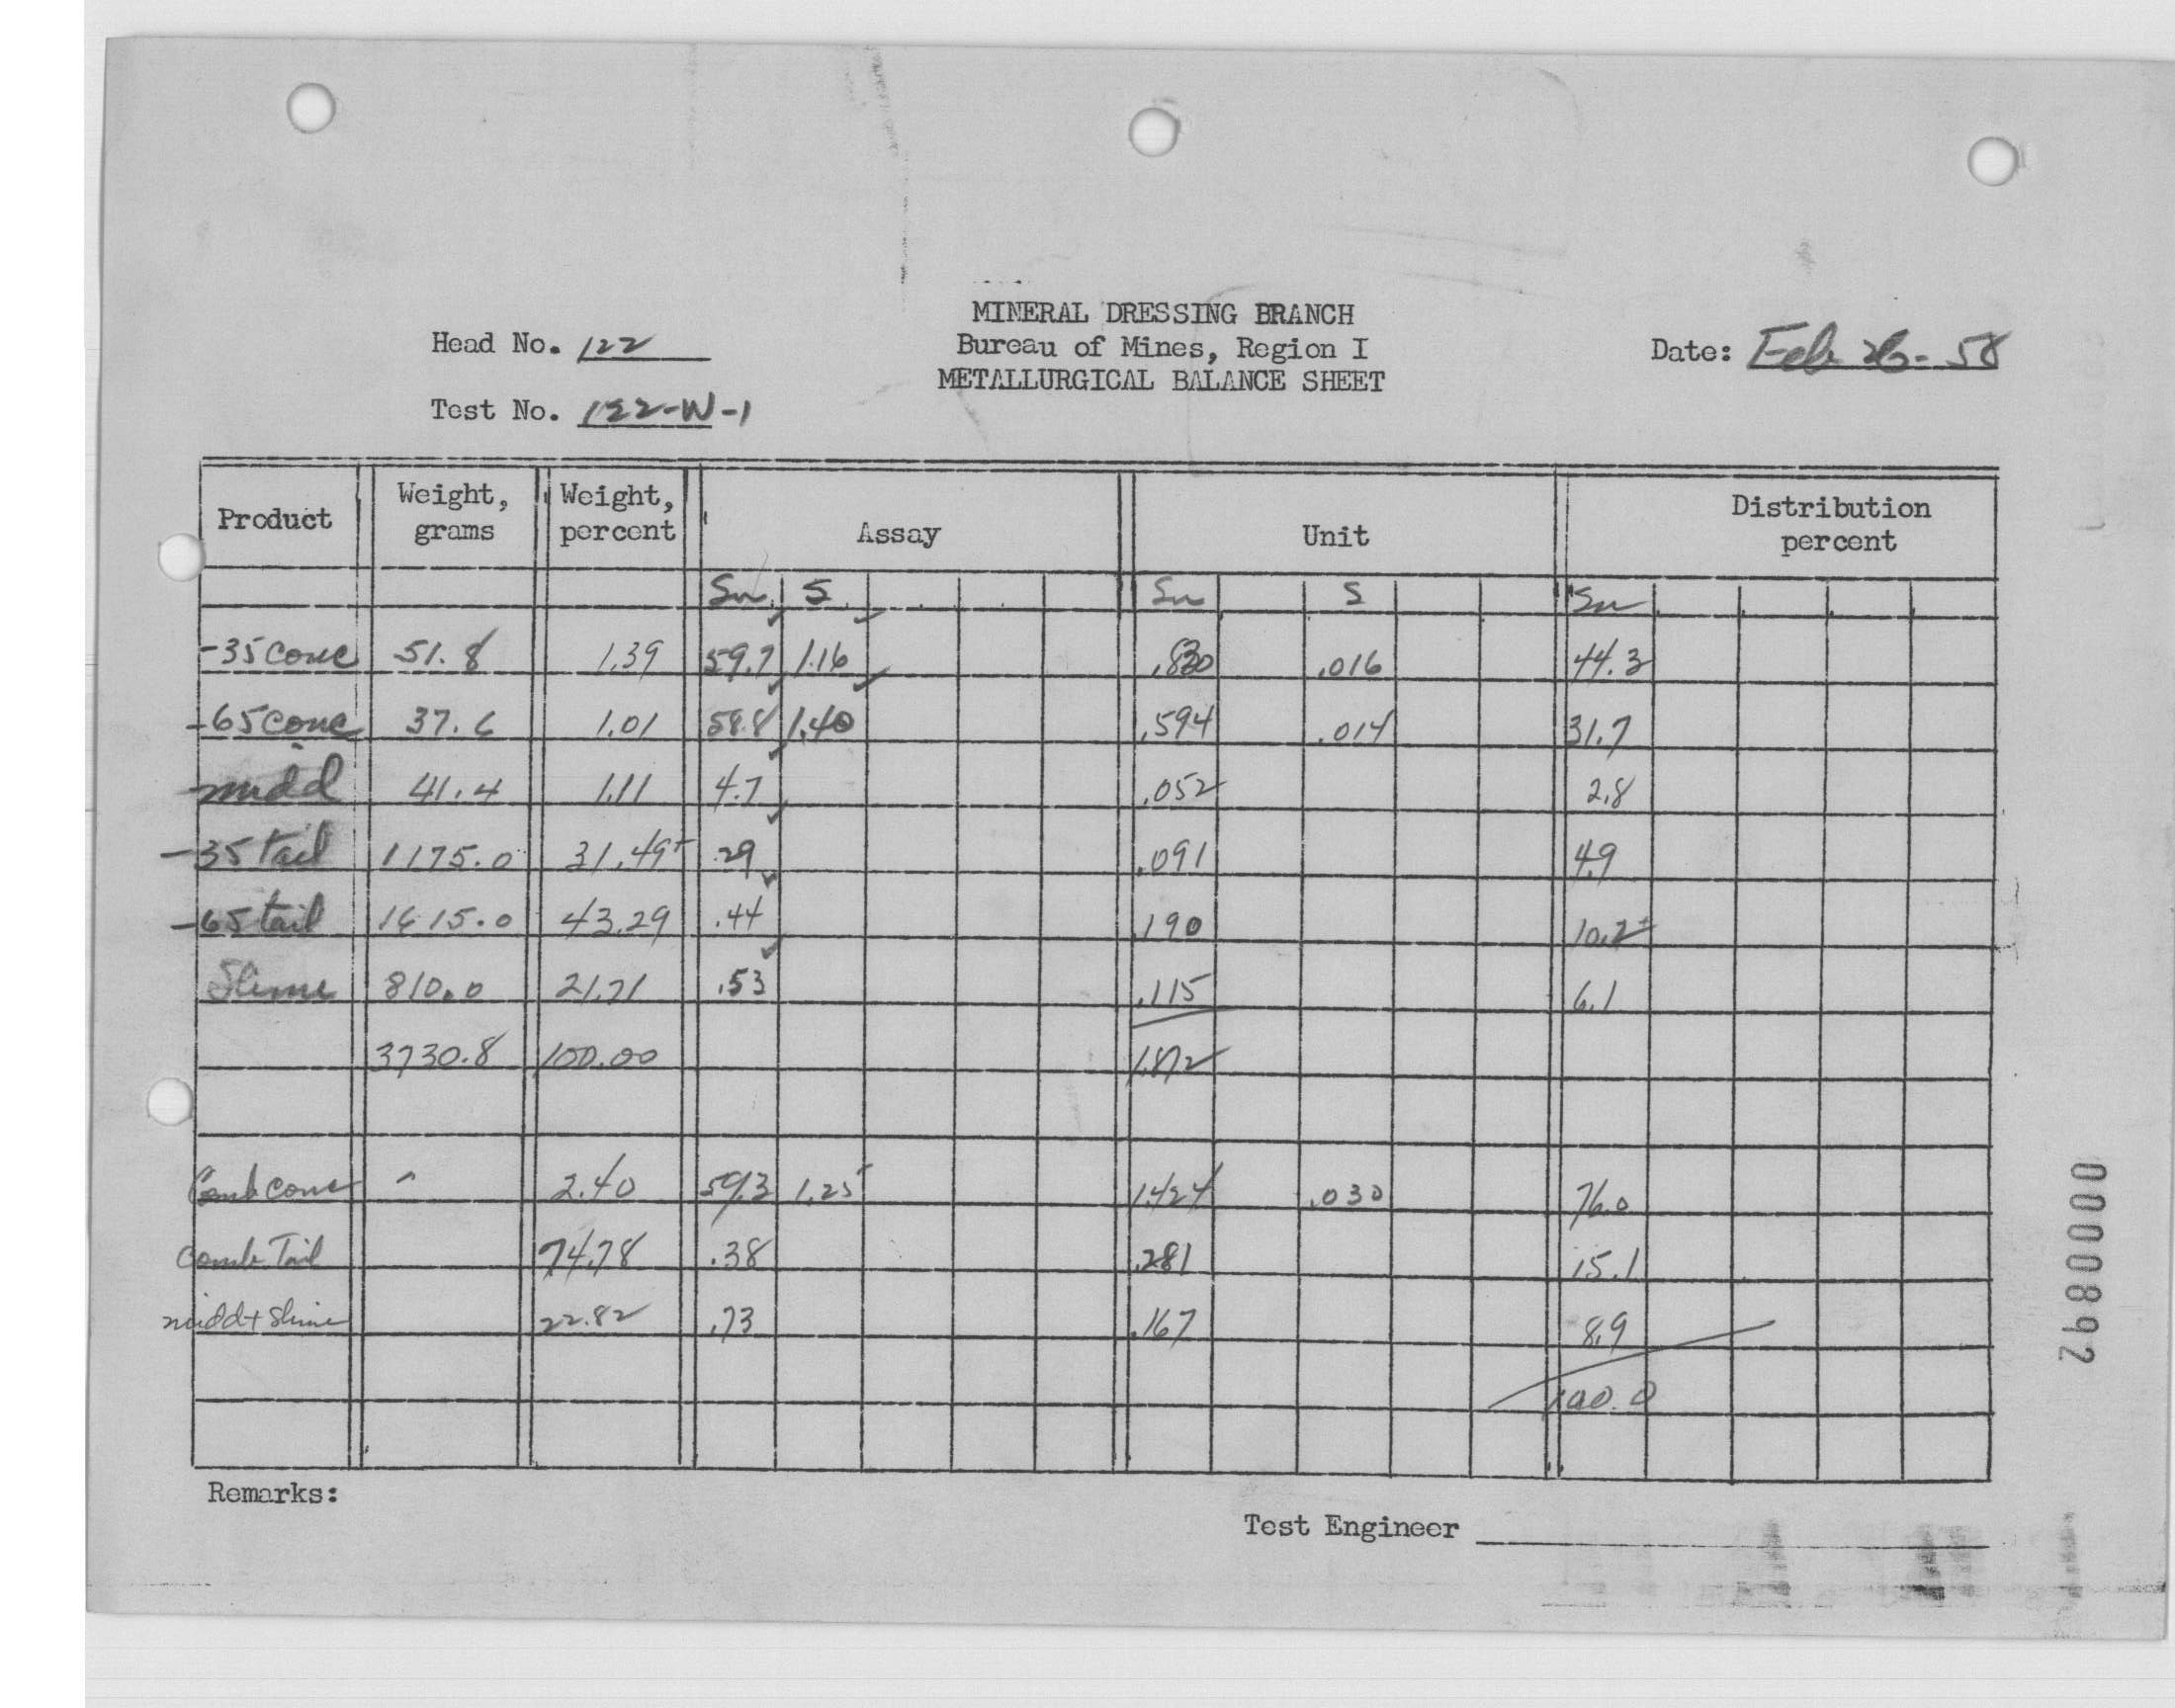 MINERAL DRESSING BRANCH
Head No. 122 Bureau of Mines, Region I Date: Feb 26-58
METALLURGICAL BALANCE SHEET
Test No. 122-W-1
Product Weight, grams Weight, percent Assay Unit Distribution percent
Sn S Sn S Sn
-35 conc 51.8 1.39 59.7 1.16 .830 .016 44.3
-65 conc 37.6 1.01 58.8 1.40 .594 .014 31.7
midd 41.4 1.11 4.7 .052 2.8
-35 tail 1175.0 31.49+ .29 .091 4.9
-65 tail 1615.0 43.29 .44 .190 10.2±
Slime 810.0 21.71 .53 .115 6.1
3730.8 100.00 1.872
Comb conc - 2.40 59.3 1.25 1.424 .030 76.0
Comb Tail 74.78 .38 .281 15.1
midd + Slime 22.82 .73 .167 8.9
100.0
Remarks:
Test Engineer
0000892